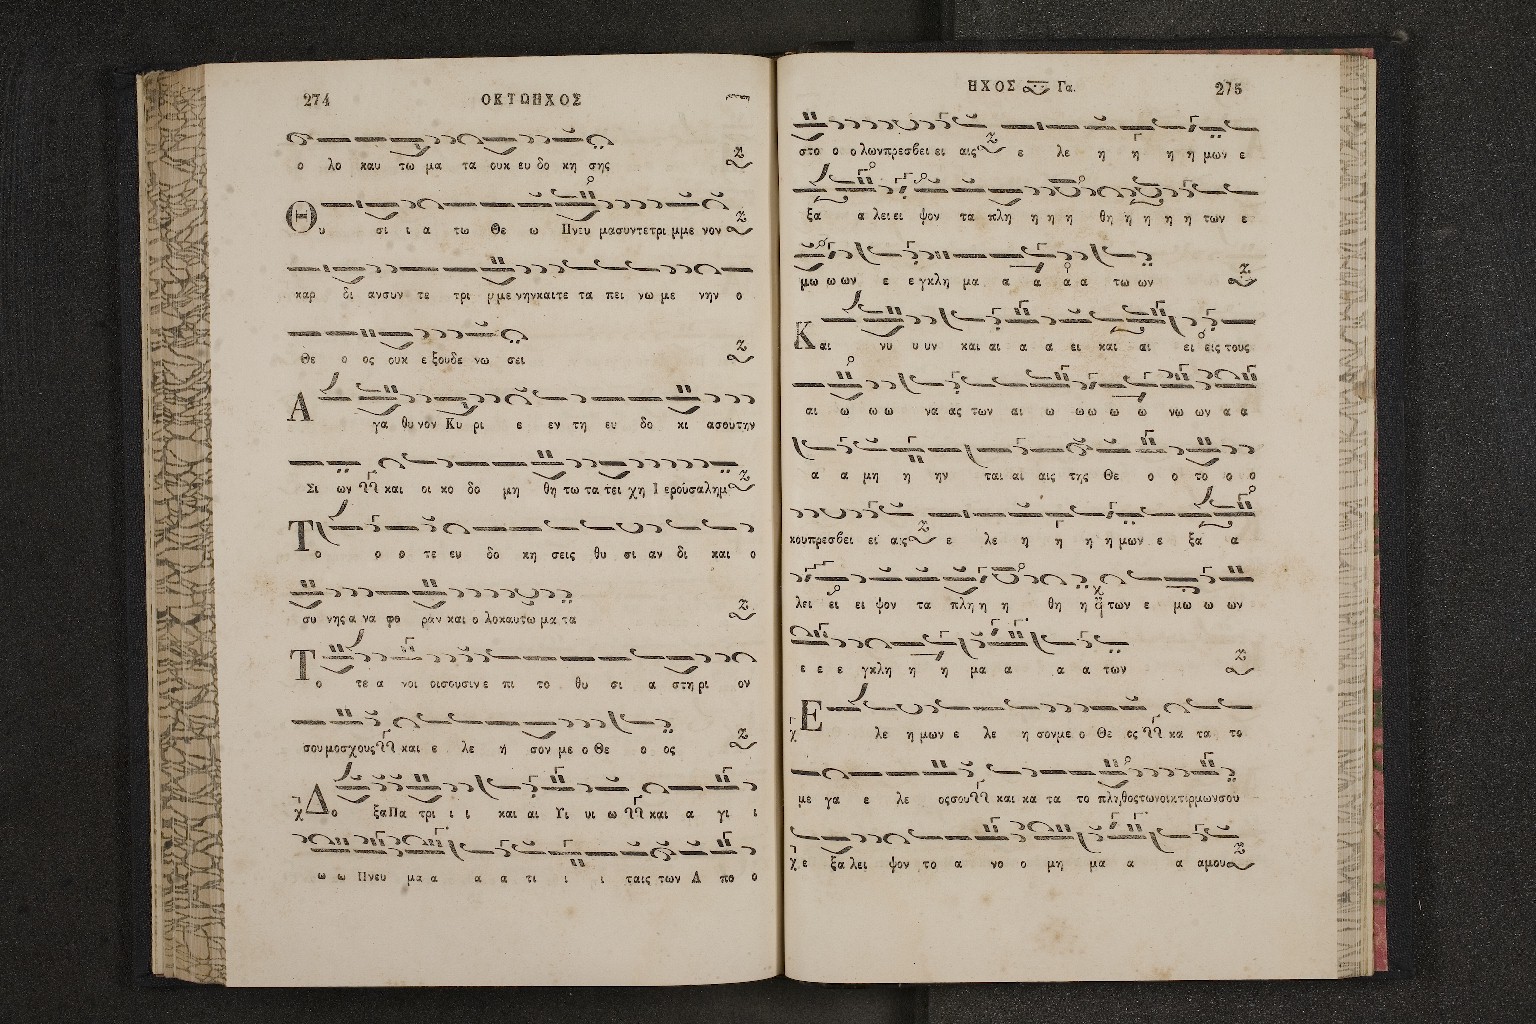 274 ΟΚΤΩΗΧΟΣ
ο λο καυ τω μα τα ουκ ευ δο κη σης
Θυ σι ι α τω Θε ω Πνευ μα συντετρι μμε νον
καρ δι αν συν τε τρι μμε νην και τε τα πει νω με νην ο
Θε ο ος ουκ ε ξουδε νω σει
Α γα θυ νον Κυ ρι ε εν τη ευ δο κι α σου την
Σι ων και οι κο δο μη θη τω τα τει χη Ι ερουσαλημ
Το ο ο τε ευ δο κη σεις θυ σι αν δι και ο
συ νης α να φο ραν και ο λοκαυτω μα τα
Το τε α νοι σουσιν ε πι το θυ σι α στη ρι ον
σου μοσχους και ε λε η σον με ο Θε ο ος
Δο ξα Πα τρι ι ι και αι Υι υι ω και α γι ι
ω ω Πνευ μα α α α τι ι ι ταις των Α πο ο
ΗΧΟΣ Γα. 275
στο ο ο λων πρεσβει ει αις ε λε η η η η μων ε
ξα α λει ει ψον τα πλη η η η θη η η η η των ε
μω ω ων ε ε γκλη μα α α α α τω ων
Και νυ υ υν και αι α α ει και αι ει εις τους
αι ω ω ω να ας των αι ω ω ω ω ω νω ων α α
α α μη η ην ται αι αις της Θε ο ο το ο ο
κου πρεσβει ει αις ε λε η η η η μων ε ξα α
λει ει ει ψον τα πλη η η θη η η των ε μω ω ων
ε ε ε γκλη η η μα α α α των
Ε λε η μων ε λε η σον με ο Θε ος κα τα το
με γα ε λε ος σου και κα τα το πληθος των οικτιρμων σου
ε ξα λει ψον το α νο ο μη μα α α α μου